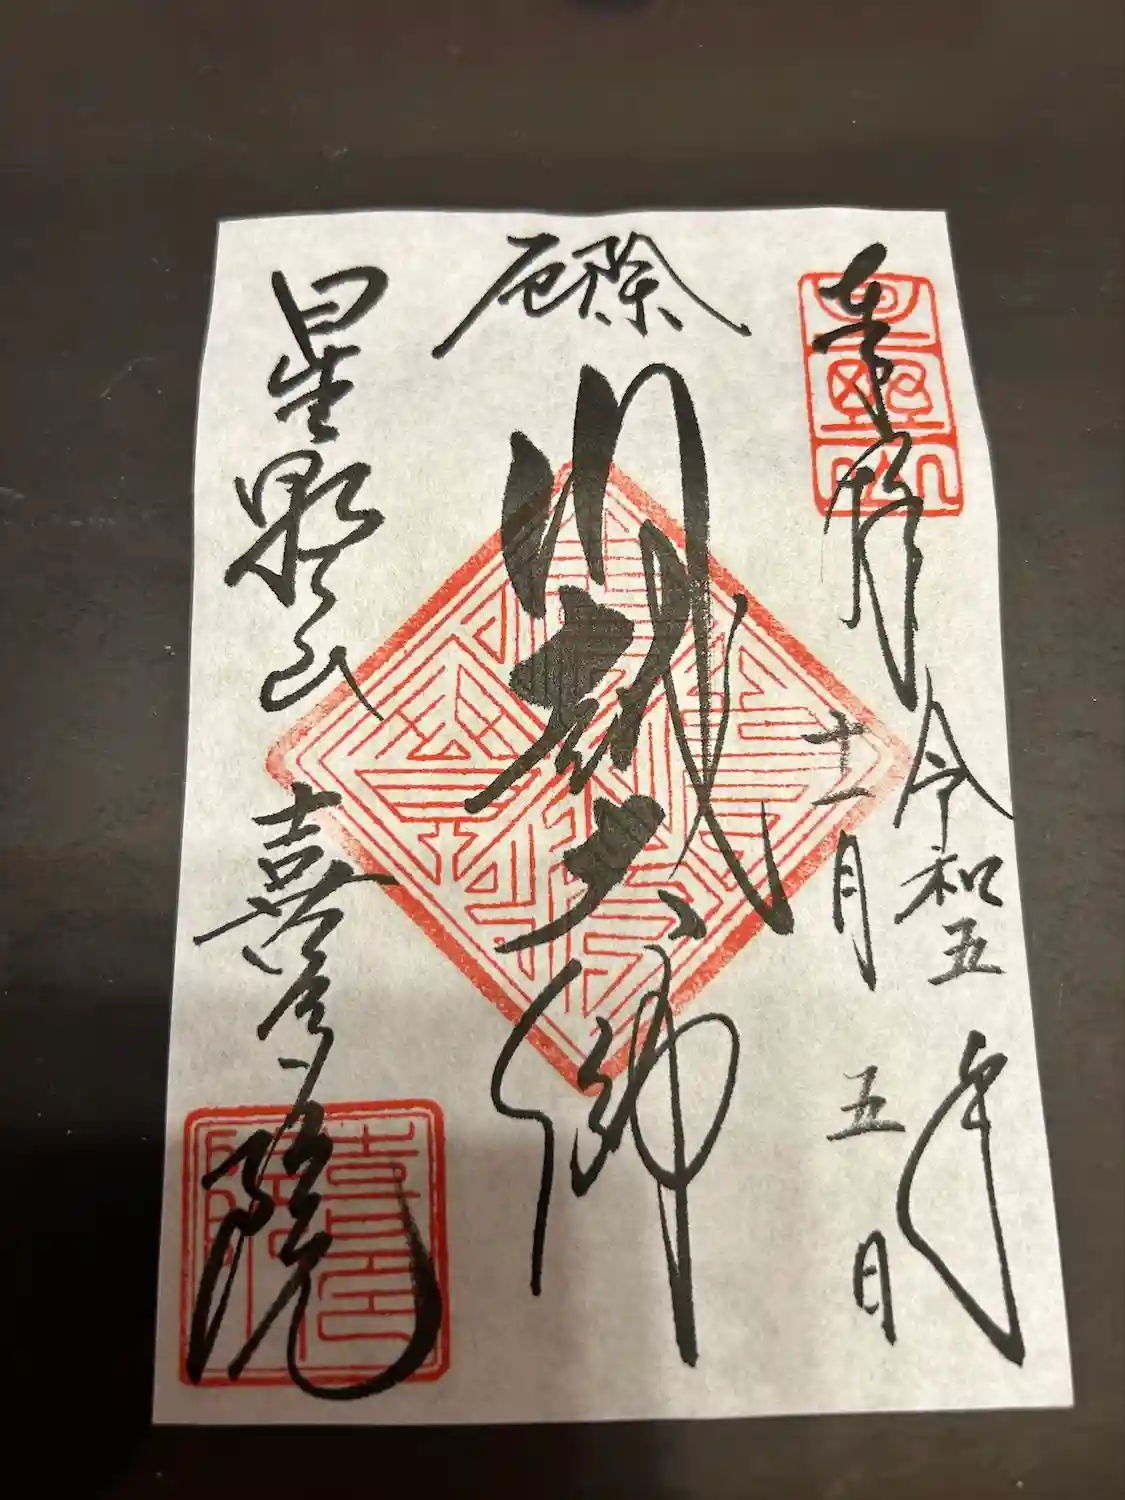 奉拝
令和五年
十一月五日
厄除
川越大師
星野山 喜多院